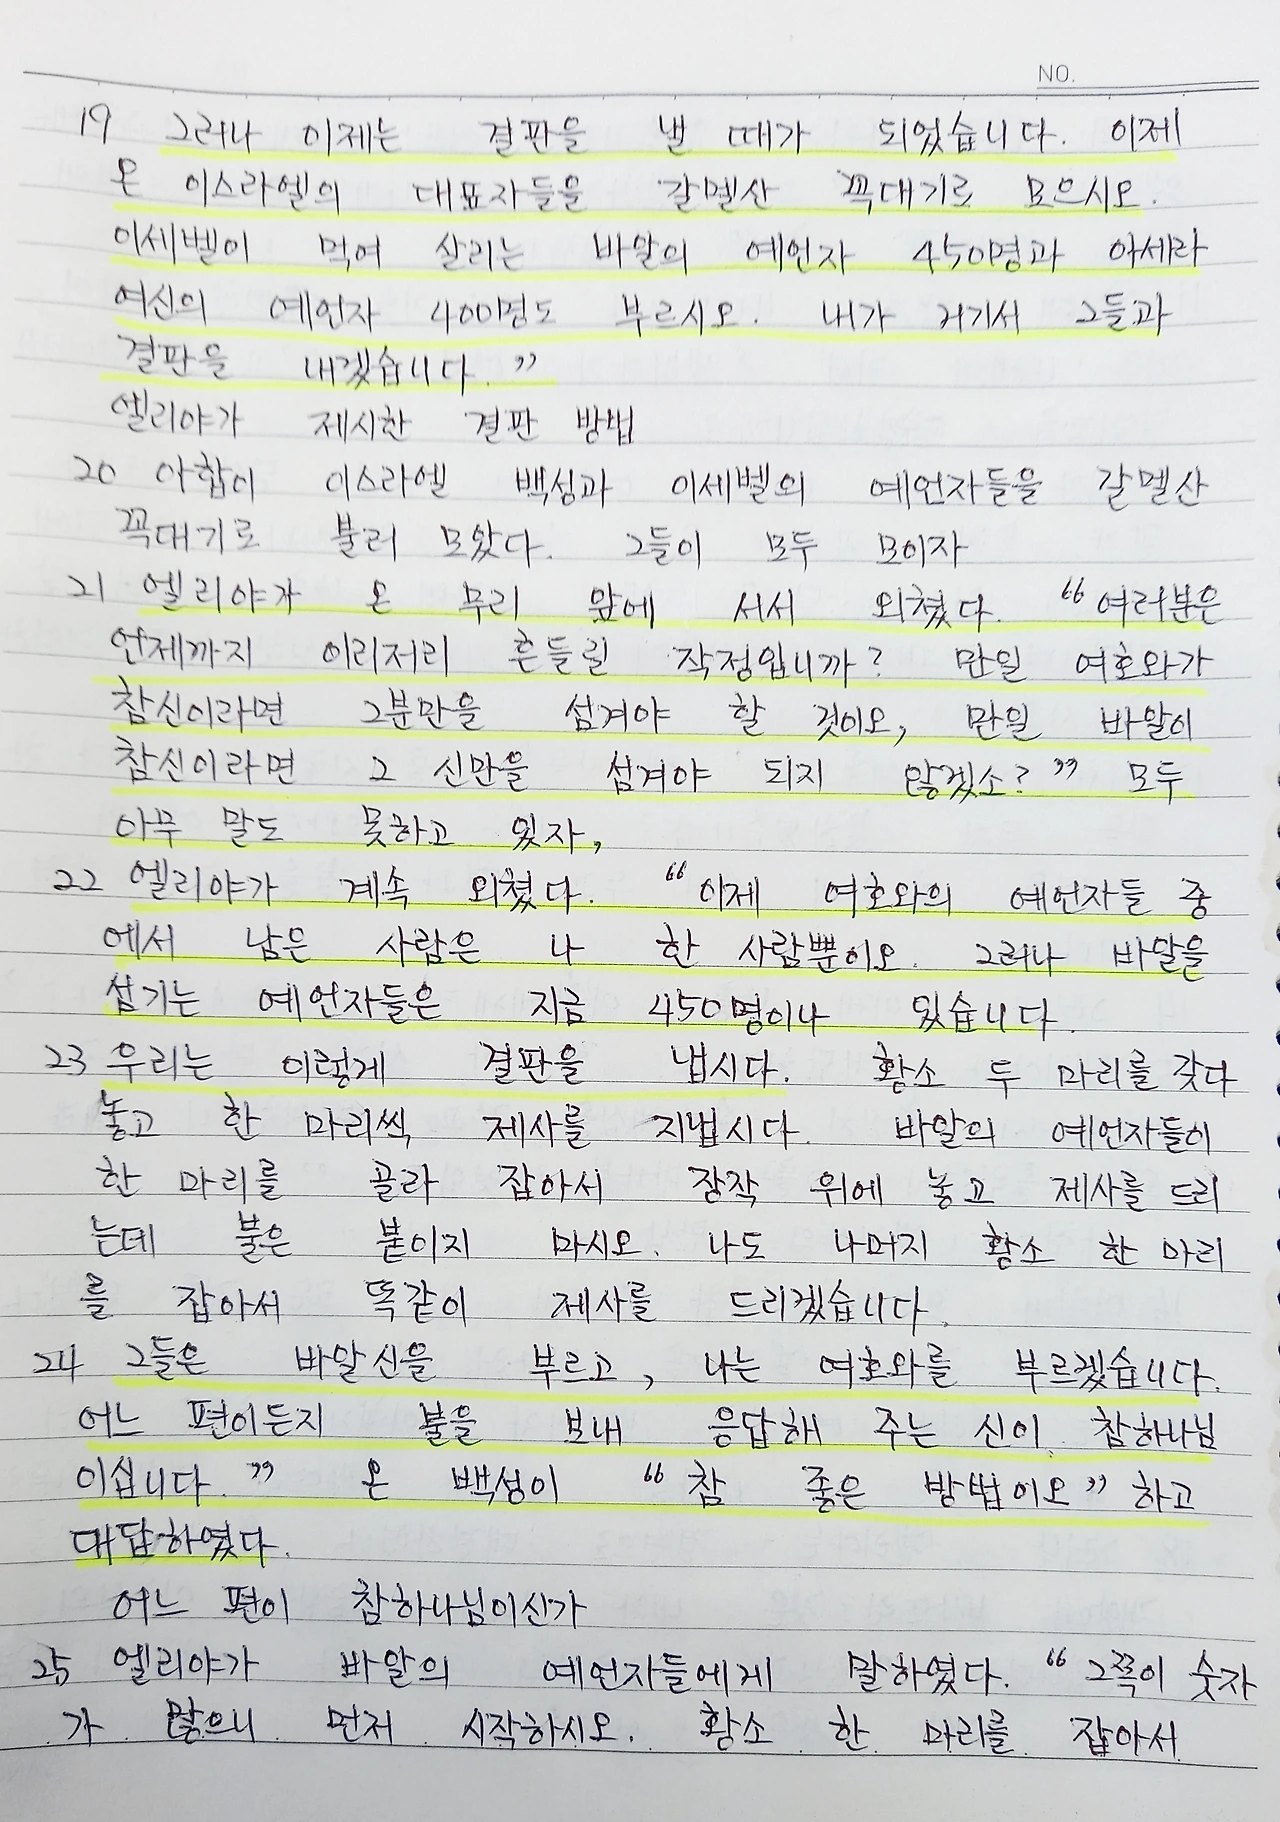 NO.
19 그러나 이제는 결판을 낼 때가 되었습니다. 이제
온 이스라엘의 대표자들을 갈멜산 꼭대기로 모으시오.
이세벨이 먹여 살리는 바알의 예언자 450명과 아세라
여신의 예언자 400명도 부르시오. 내가 거기서 그들과
결판을 내겠습니다."
엘리야가 제시한 결판 방법
20 아합이 이스라엘 백성과 이세벨의 예언자들을 갈멜산
꼭대기로 불러 모았다. 그들이 모두 모이자
21 엘리야가 온 무리 앞에 서서 외쳤다. "여러분은
언제까지 이리저리 흔들릴 작정입니까? 만일 여호와가
참신이라면 그분만을 섬겨야 할 것이오, 만일 바알이
참신이라면 그 신만을 섬겨야 되지 않겠소?" 모두
아무 말도 못하고 있자,
22 엘리야가 계속 외쳤다. "이제 여호와의 예언자들 중
에서 남은 사람은 나 한 사람뿐이오. 그러나 바알을
섬기는 예언자들은 지금 450명이나 있습니다.
23 우리는 이렇게 결판을 냅시다. 황소 두 마리를 갖다
놓고 한 마리씩 제사를 지냅시다. 바알의 예언자들이
한 마리를 골라 잡아서 장작 위에 놓고 제사를 드리
는데 불은 붙이지 마시오. 나도 나머지 황소 한 마리
를 잡아서 똑같이 제사를 드리겠습니다.
24 그들은 바알신을 부르고, 나는 여호와를 부르겠습니다.
어느 편이든지 불을 보내 응답해 주는 신이 참하나님
이십니다." 온 백성이 "참 좋은 방법이오" 하고
대답하였다.
어느 편이 참하나님이신가
25 엘리야가 바알의 예언자들에게 말하였다. "그쪽이 숫자
가 많으니 먼저 시작하시오. 황소 한 마리를 잡아서